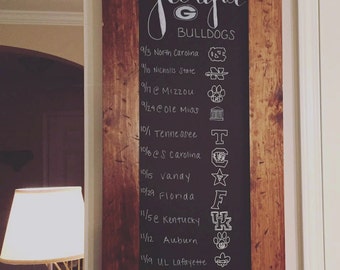 Georgia
G
BULLDOGS
9/3 North Carolina
9/10 Nicholls State N
9/17 @ Mizzou
9/24 @ Ole Miss
10/1 Tennessee T
10/8 @ S Carolina
10/15 Vandy
10/29 Florida F
11/5 @ Kentucky UK
11/12 Auburn
11/19 UL Lafayette